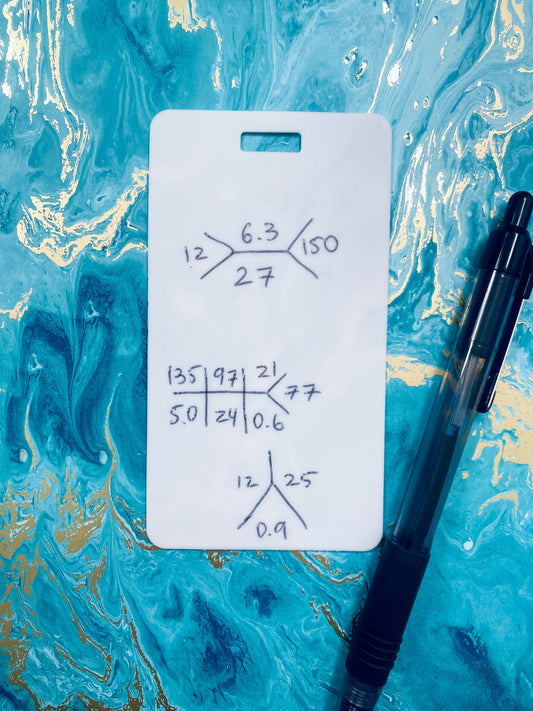 6.3
12 150
27
135 97 21
77
5.0 24 0.6
12 25
0.9